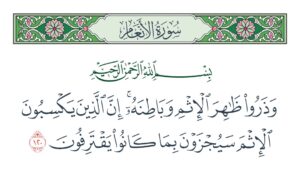 سُورَةُ الأَنْعَامِ
بِسْمِ اللَّهِ الرَّحْمَٰنِ الرَّحِيمِ
وَذَرُوا۟ ظَٰهِرَ ٱلْإِثْمِ وَبَاطِنَهُۥٓ ۚ إِنَّ ٱلَّذِينَ يَكْسِبُونَ
ٱلْإِثْمَ سَيُجْزَوْنَ بِمَا كَانُوا۟ يَقْتَرِفُونَ ١٢٠